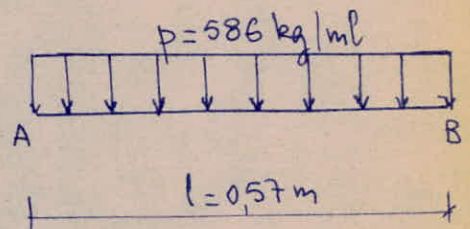 p=586 kg/ml
A B
l=0,57 m